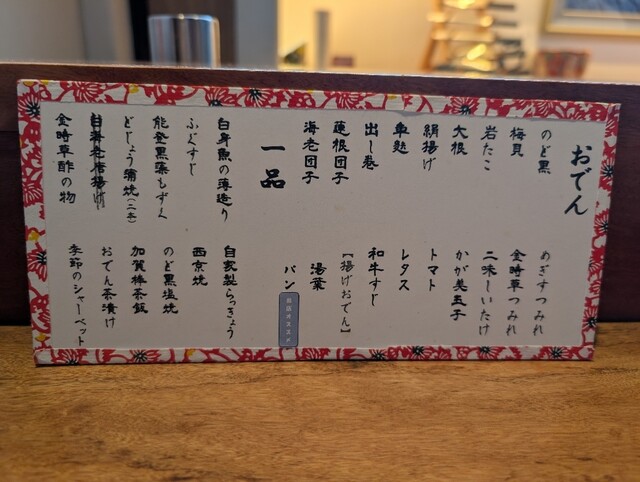 おでん
のど黒
梅貝
岩たこ
大根
絹揚げ
車麩
出し巻
蓮根団子
海老団子
めぎすつみれ
金時草つみれ
二味しいたけ
かが美玉子
トマト
レタス
和牛すじ
【揚げおでん】
湯葉
パン
一品
白身魚の薄造り
ふぐすじ
能登黒藻もずく
どじょう蒲焼(二本)
金時草酢の物
自家製らっきょう
西京焼
のど黒塩焼
加賀棒茶飯
おでん茶漬け
季節のシャーベット